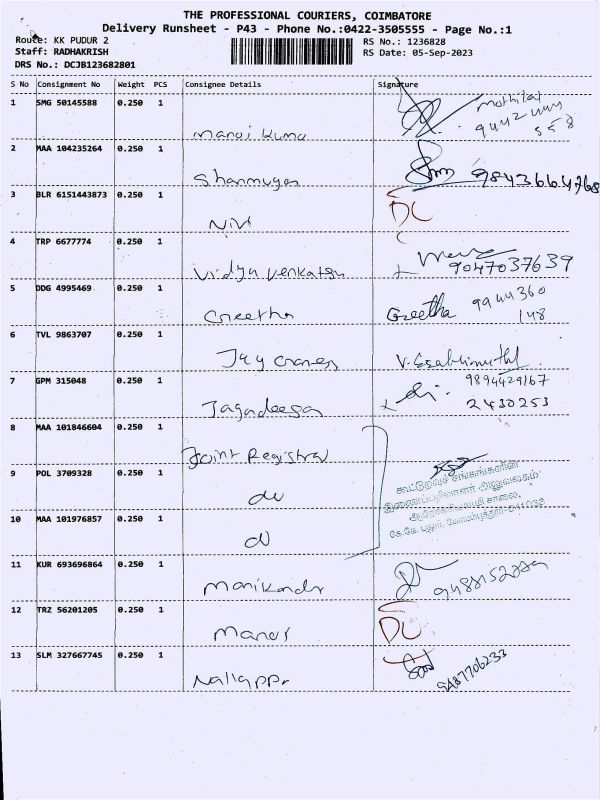 THE PROFESSIONAL COURIERS, COIMBATORE
Delivery Runsheet - P43 - Phone No.:0422-3505555 - Page No.:1
Route: KK PUDUR 2
RS No.: 1236828
Staff: RADHAKRISH
RS Date: 05-Sep-2023
DRS No.: DCJB123682801
S No Consignment No Weight PCS Consignee Details Signature
1 SMG 50145588 0.250 1
Manoj Kuma
2 MAA 104235264 0.250 1
Shanmugan 9843664768
3 BLR 6151443873 0.250 1
Nivi DC
4 TRP 6677774 0.250 1
Vidya Venkatsn 9047037639
5 DDG 4995469 0.250 1
Geetha Geetha 9944360
148
6 TVL 9863707 0.250 1
7 GPM 315048 0.250 1 9894429167
Jagadeesan 2430253
8 MAA 101846604 0.250 1
Joint Registral
9 POL 3709328 0.250 1
கூட்டுறவுச் சங்கங்களின்
இணைப்பதிவாளர் அலுவலகம்
10 MAA 101976857 0.250 1
11 KUR 693696864 0.250 1
Manikandn
12 TRZ 56201205 0.250 1
Manoj DC
13 SLM 327667745 0.250 1
Nallappn 9487706233